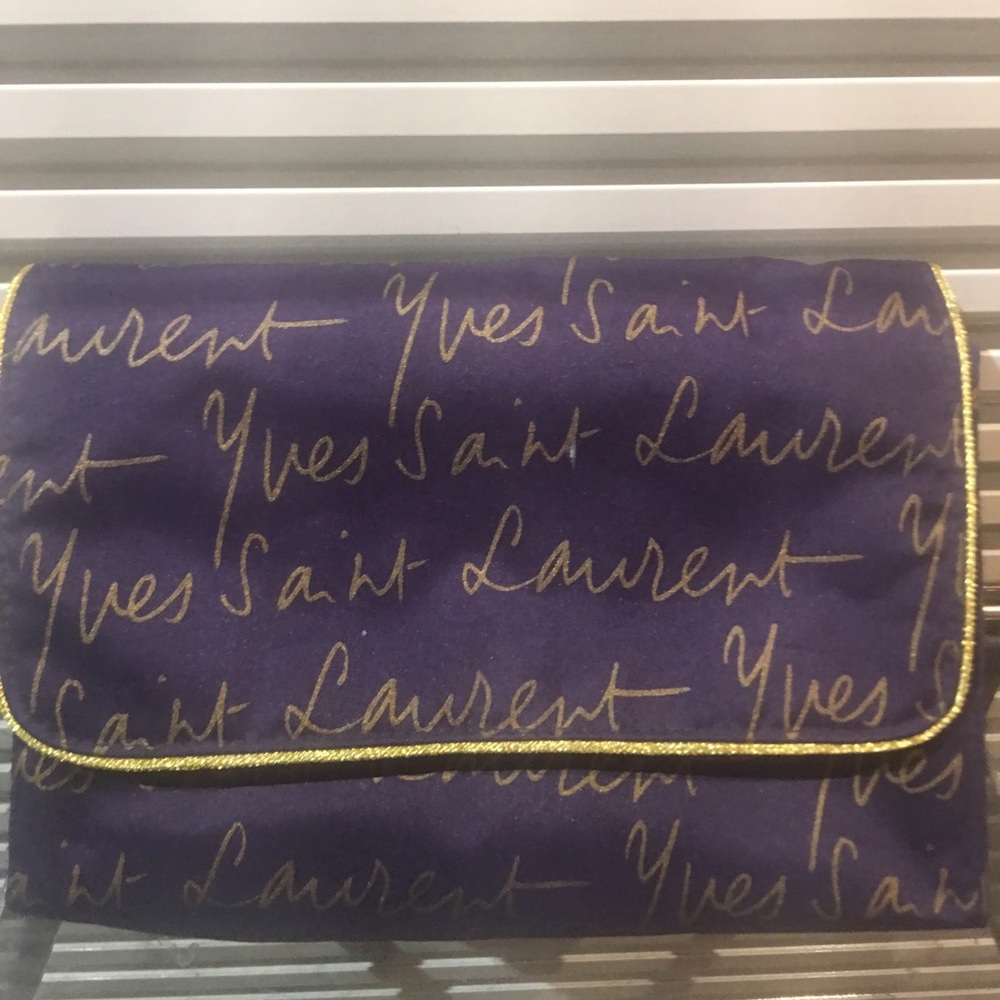 aurent Yves Saint Lau
ent Yves Saint Lauren
Yves Saint Laurent Y
Saint Laurent Yves S
ves Laurent Yves
aint Laurent Yves Sain